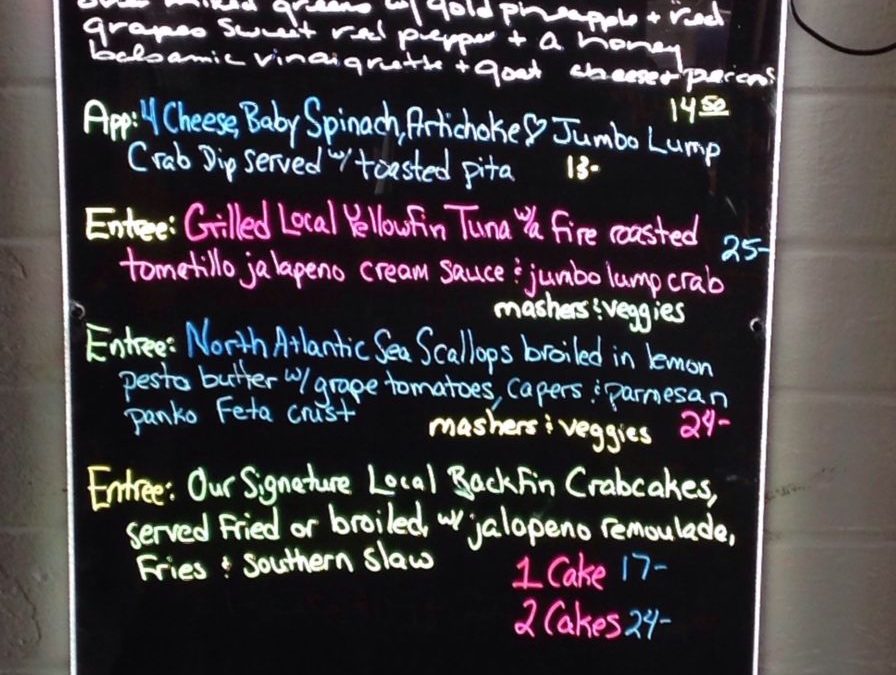 mixed greens w/ gold pineapple + red
grapes sweet red pepper + a honey
balsamic vinaigrette + goat cheese + pecans
14 50
App: 4 Cheese, Baby Spinach, Artichoke ♡ Jumbo Lump
Crab Dip served w/ toasted pita 13-
Entree: Grilled Local Yellowfin Tuna w/a fire roasted 25-
tomatillo jalapeno cream sauce & jumbo lump crab
mashers & veggies
Entree: North Atlantic Sea Scallops broiled in lemon
pesto butter w/ grape tomatoes, capers & parmesan
panko Feta crust
mashers & veggies 24-
Entree: Our Signature Local Backfin Crabcakes,
served Fried or broiled, w/ jalapeno remoulade,
Fries & Southern Slaw
1 Cake 17-
2 Cakes 24-